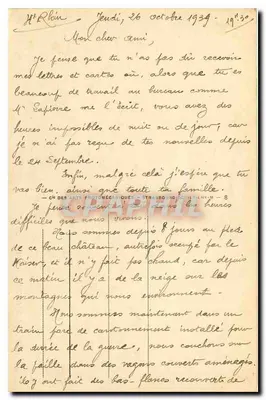 Ht Rhin Jeudi, 26 octobre 1939 - 19h30
Mon cher ami,
Je pense que tu n'as pas dû recevoir
mes lettres et cartes où, alors que tu es
beaucoup de travail au bureau comme
Mr me l'écrit, vous avez des
heures impossibles de nuit ou de jour, car
je n'ai pas reçu de tes nouvelles depuis
le 24 Septembre.
Enfin, malgré cela j'espère que tu
vas bien, ainsi que toute ta famille.
Je heures
difficiles que nous vivons.
Nous sommes depuis 8 jours au pieds
de ce beau château, autrefois occupé par le
Kaiser et il n'y fait pas chaud, car depuis
ce matin il y a de la neige sur les
montagnes qui nous environnent.
Nous sommes maintenant dans un
train parc de cantonnement installé pour
la durée de la guerre, nous couchons sur
la paille dans des wagons couverts aménagés.
ils y ont fait des bas-flancs recouverts de